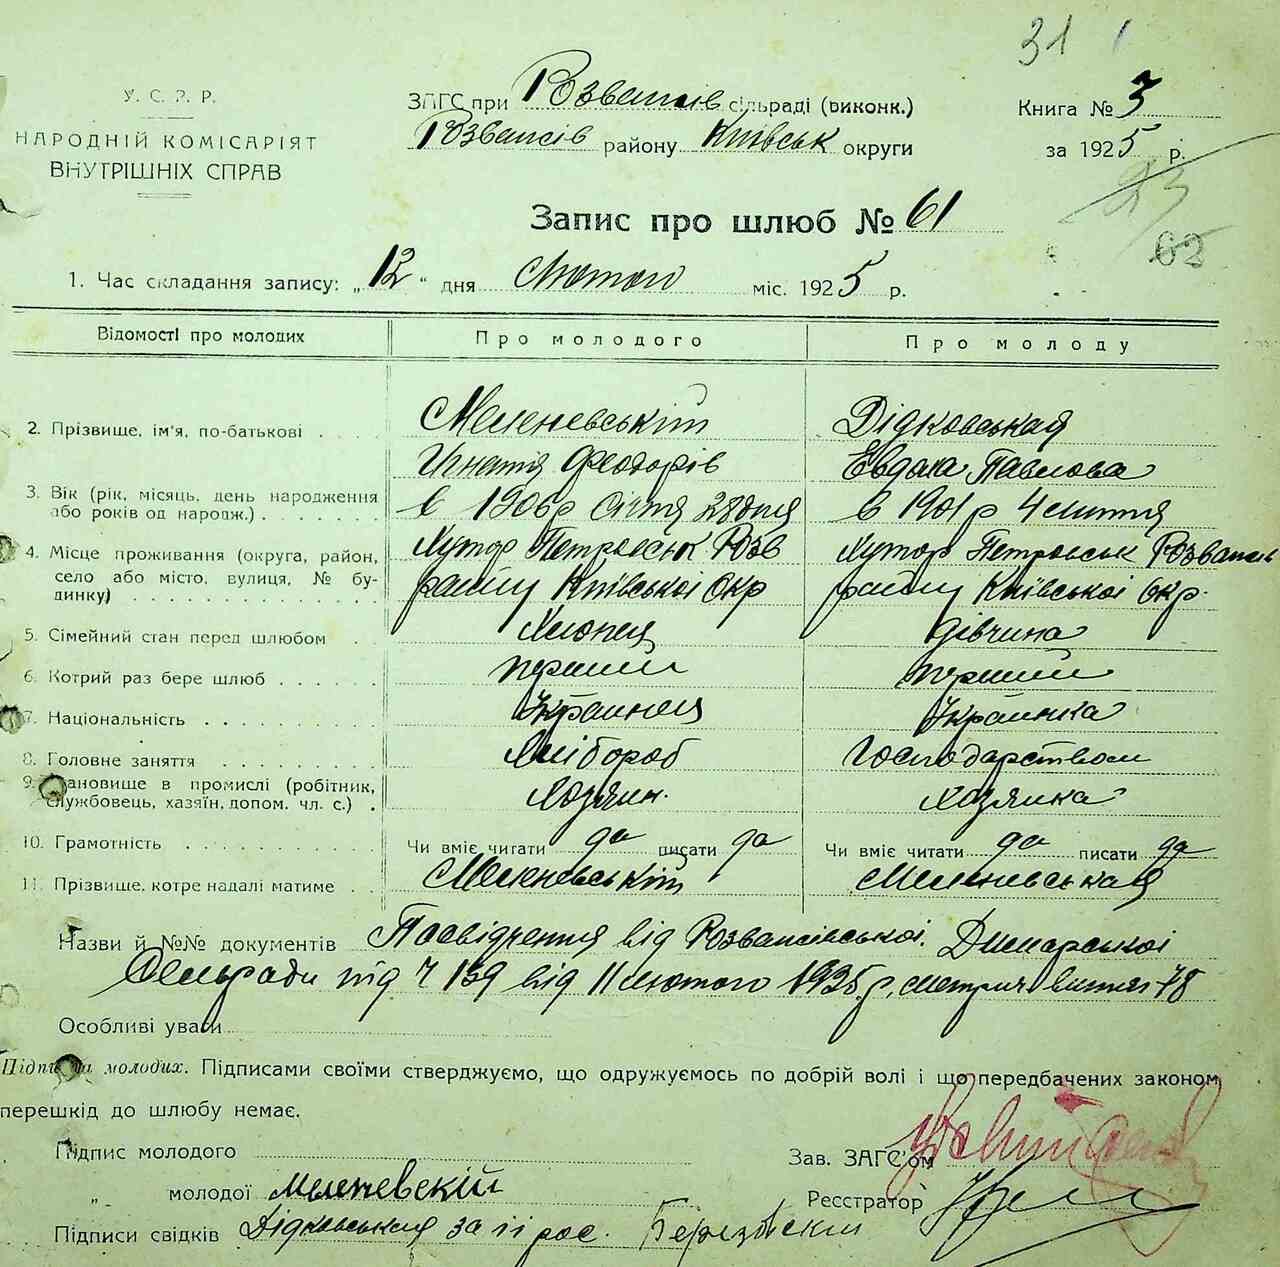 31
У. С. Р. Р.
НАРОДНІЙ КОМІСАРІЯТ
ВНУТРІШНІХ СПРАВ
ЗАГС при Розважів сільраді (виконк.)
Розважів району Київськ округи
Книга № 3
за 1925 р.
23
62
Запис про шлюб № 61
1. Час складання запису: „12“ дня Лютого міс. 1925 р.
Відомості про молодих
Про молодого
Про молоду
2. Прізвище, ім'я, по-батькові
Меленевський
Ігнатій Феодорів
Дідковськая
Евдока Павлова
3. Вік (рік, місяць, день народження
або років од народж.)
в 1906 р Січня 28 дня
в 1901 р 4 липня
4. Місце проживання (округа, район,
село або місто, вулиця, № бу-
динку)
Хутор Петровськ Розв
району Київської Окр
Хутор Петровськ Розважів
району Київської Окр.
5. Сімейний стан перед шлюбом
Хлопец
дівчина
6. Котрий раз бере шлюб
перший
перший
7. Національність
Украинец
Украинка
8. Головне заняття
Хлібороб
Господарством
9. Становище в промислі (робітник,
службовець, хазяїн, допом. чл. с.)
Хозяин.
Хозяйка
10. Грамотність
Чи вміє читати да писати да
Чи вміє читати да писати да
11. Прізвище, котре надалі матиме
Меленевський
Меленевськая
Назви й №№ документів Посвідчення від Розважівської. Димарської
Сельради під ч 159 від 11 лютого 1925 р. метрич. 78
Особливі уваги
Підписи молодих. Підписами своїми стверджуємо, що одружуємось по добрій волі і що передбачених законом
перешкід до шлюбу немає.
Підпис молодого
„ молодої Меленевскій
Підписи свідків Дідковськая за її рос.
Зав. ЗАГС'ом
Реєстратор